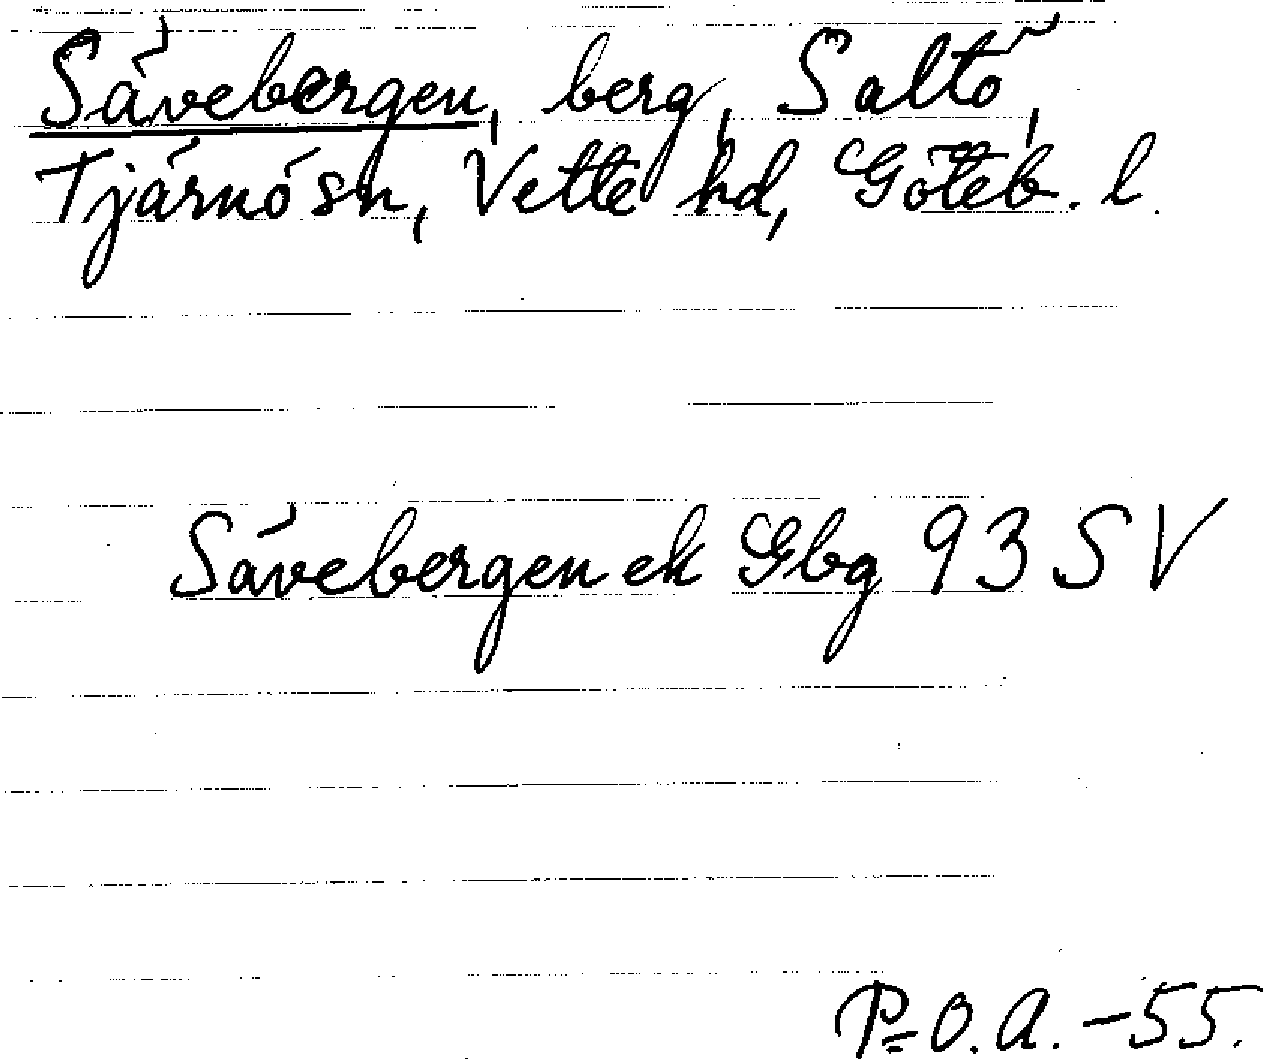 Sävebergen, berg, Saltö,
Tjärnö sn, Vette hd, Göteb. l.
Sävebergen ek Gbg 93 SV
P=O.A. -55.